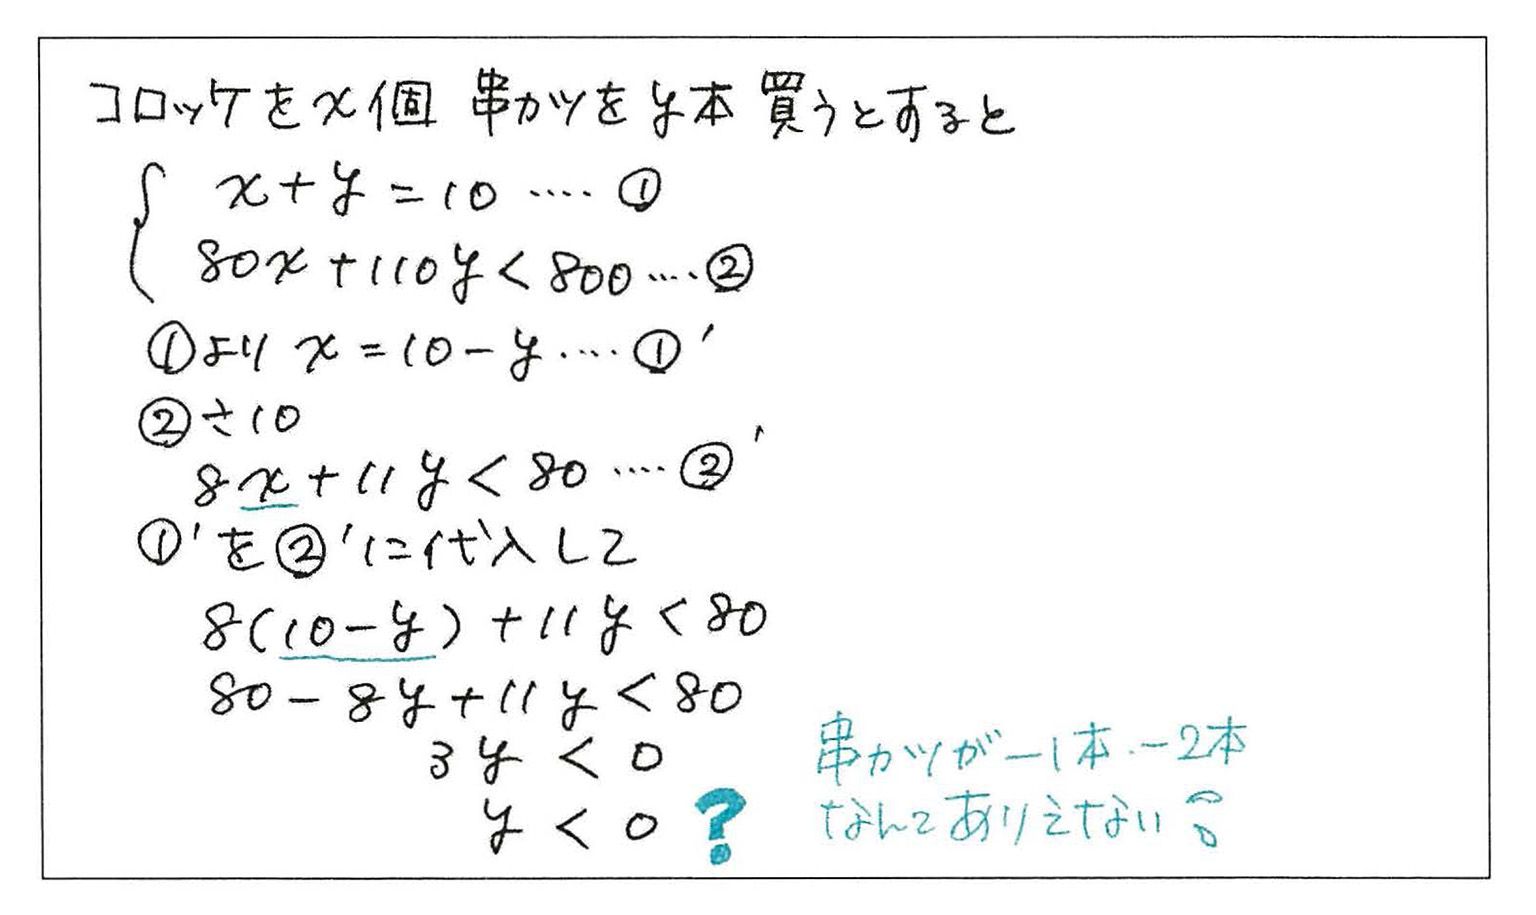 コロッケをx個 串カツをy本 買うとすると
x+y=10 …. ①
80x+110y<800 …. ②
①より x=10-y …. ①'
②÷10
8x+11y<80 …. ②'
①'を②'に代入して
8(10-y)+11y<80
80-8y+11y<80
3y<0
y<0 ?
串カツが-1本・-2本
なんてありえない